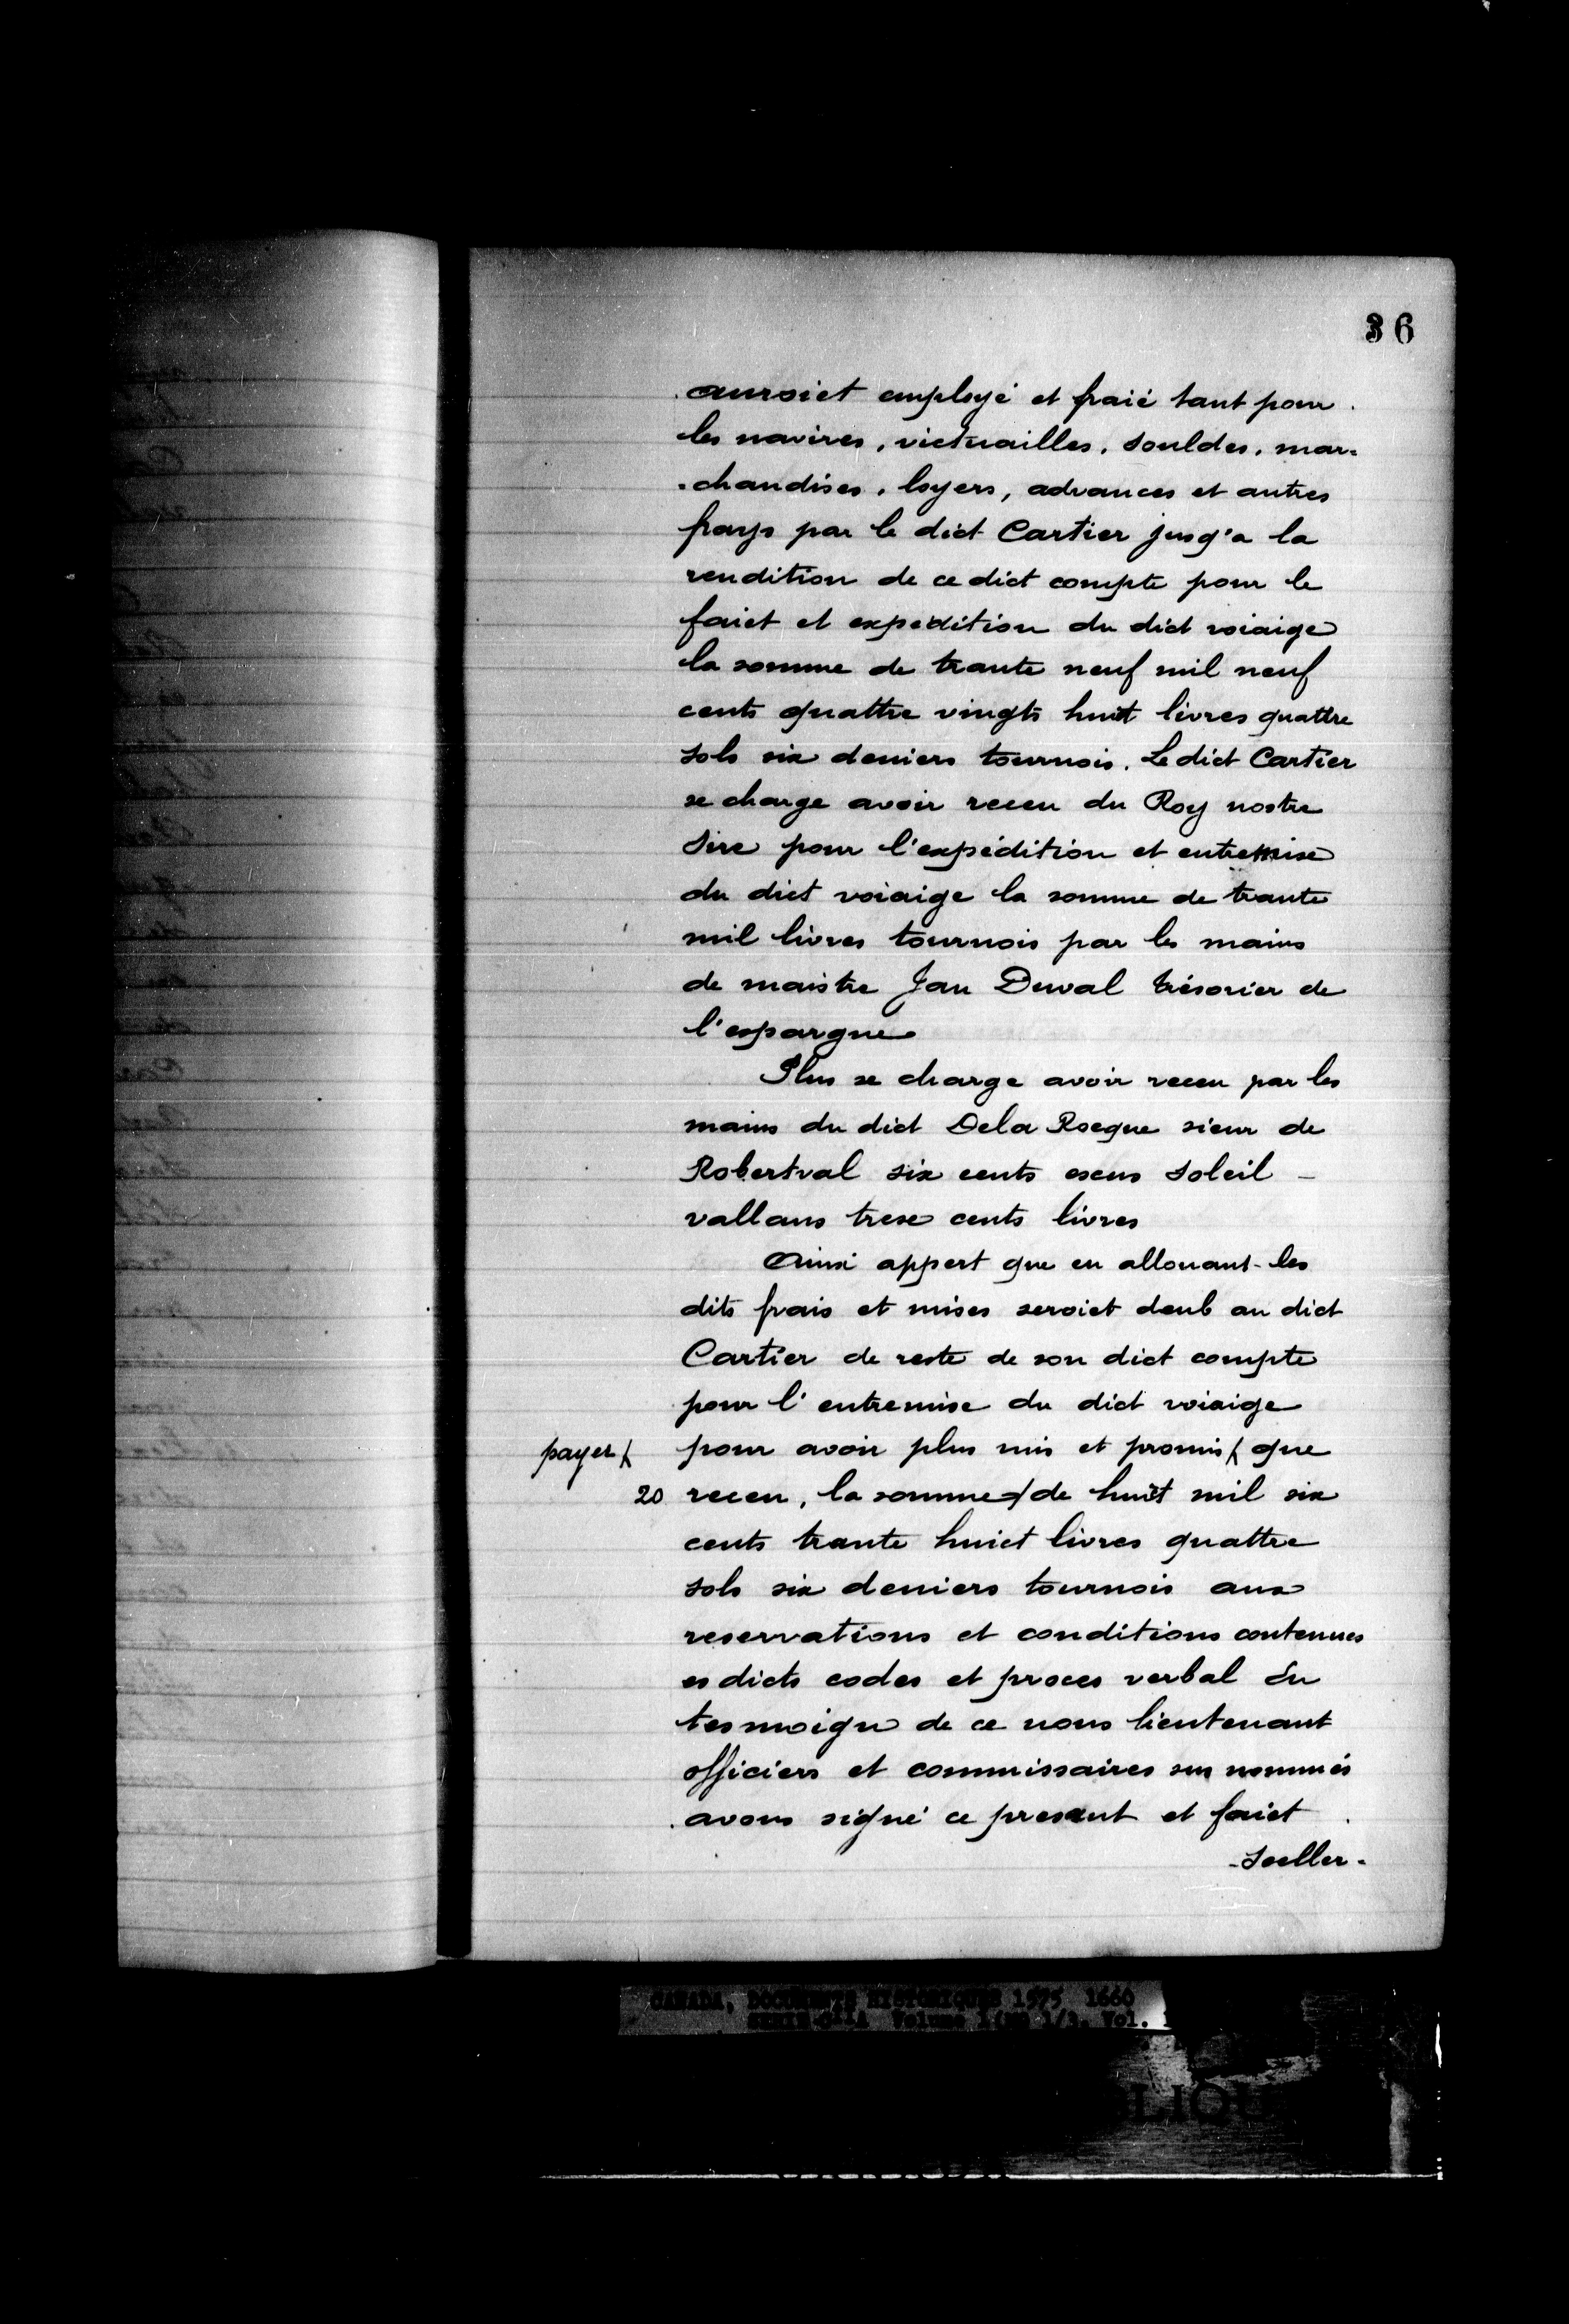 36
auroict employé et fraié tant pour
les navires, victuailles, souldes, mar-
-chandises, loyers, advances et autres
frays par le dict Cartier jusq'a la
rendition de ce dict compte pour le
faict et expedition du dict voiaige
la somme de trante neuf mil neuf
cents quattre vingts huit livres quattre
sols six deniers tournois. Le dict Cartier
se charge avoir receu du Roy nostre
Sire pour l'expédition et entremise
du dict voiaige la somme de trante
mil livres tournois par les mains
de maistre Jan Duval trésorier de
l'espargne
Plus se charge avoir receu par les
mains du dict Dela Rocque sieur de
Robertval six cents escus soleil -
vallans treze cents livres
Ainsi appert que en allouant les
dits frais et mises seroict deub au dict
Cartier de reste de son dict compte
pour l'entremise du dict voiaige
payer / pour avoir plus mis et promis / que
20 receu, la somme / de huit mil six
cents trante huict livres quattre
sols six deniers tournois aux
reservations et conditions contenues
es dicts codes et proces verbal En
tesmoign de ce nous lieutenant
officiers et commissaires sus nommés
avons signé ce present et faict
-Sceller-
CANADA, DOCUMENTS HISTORIQUES 1575 1660
Volume 1